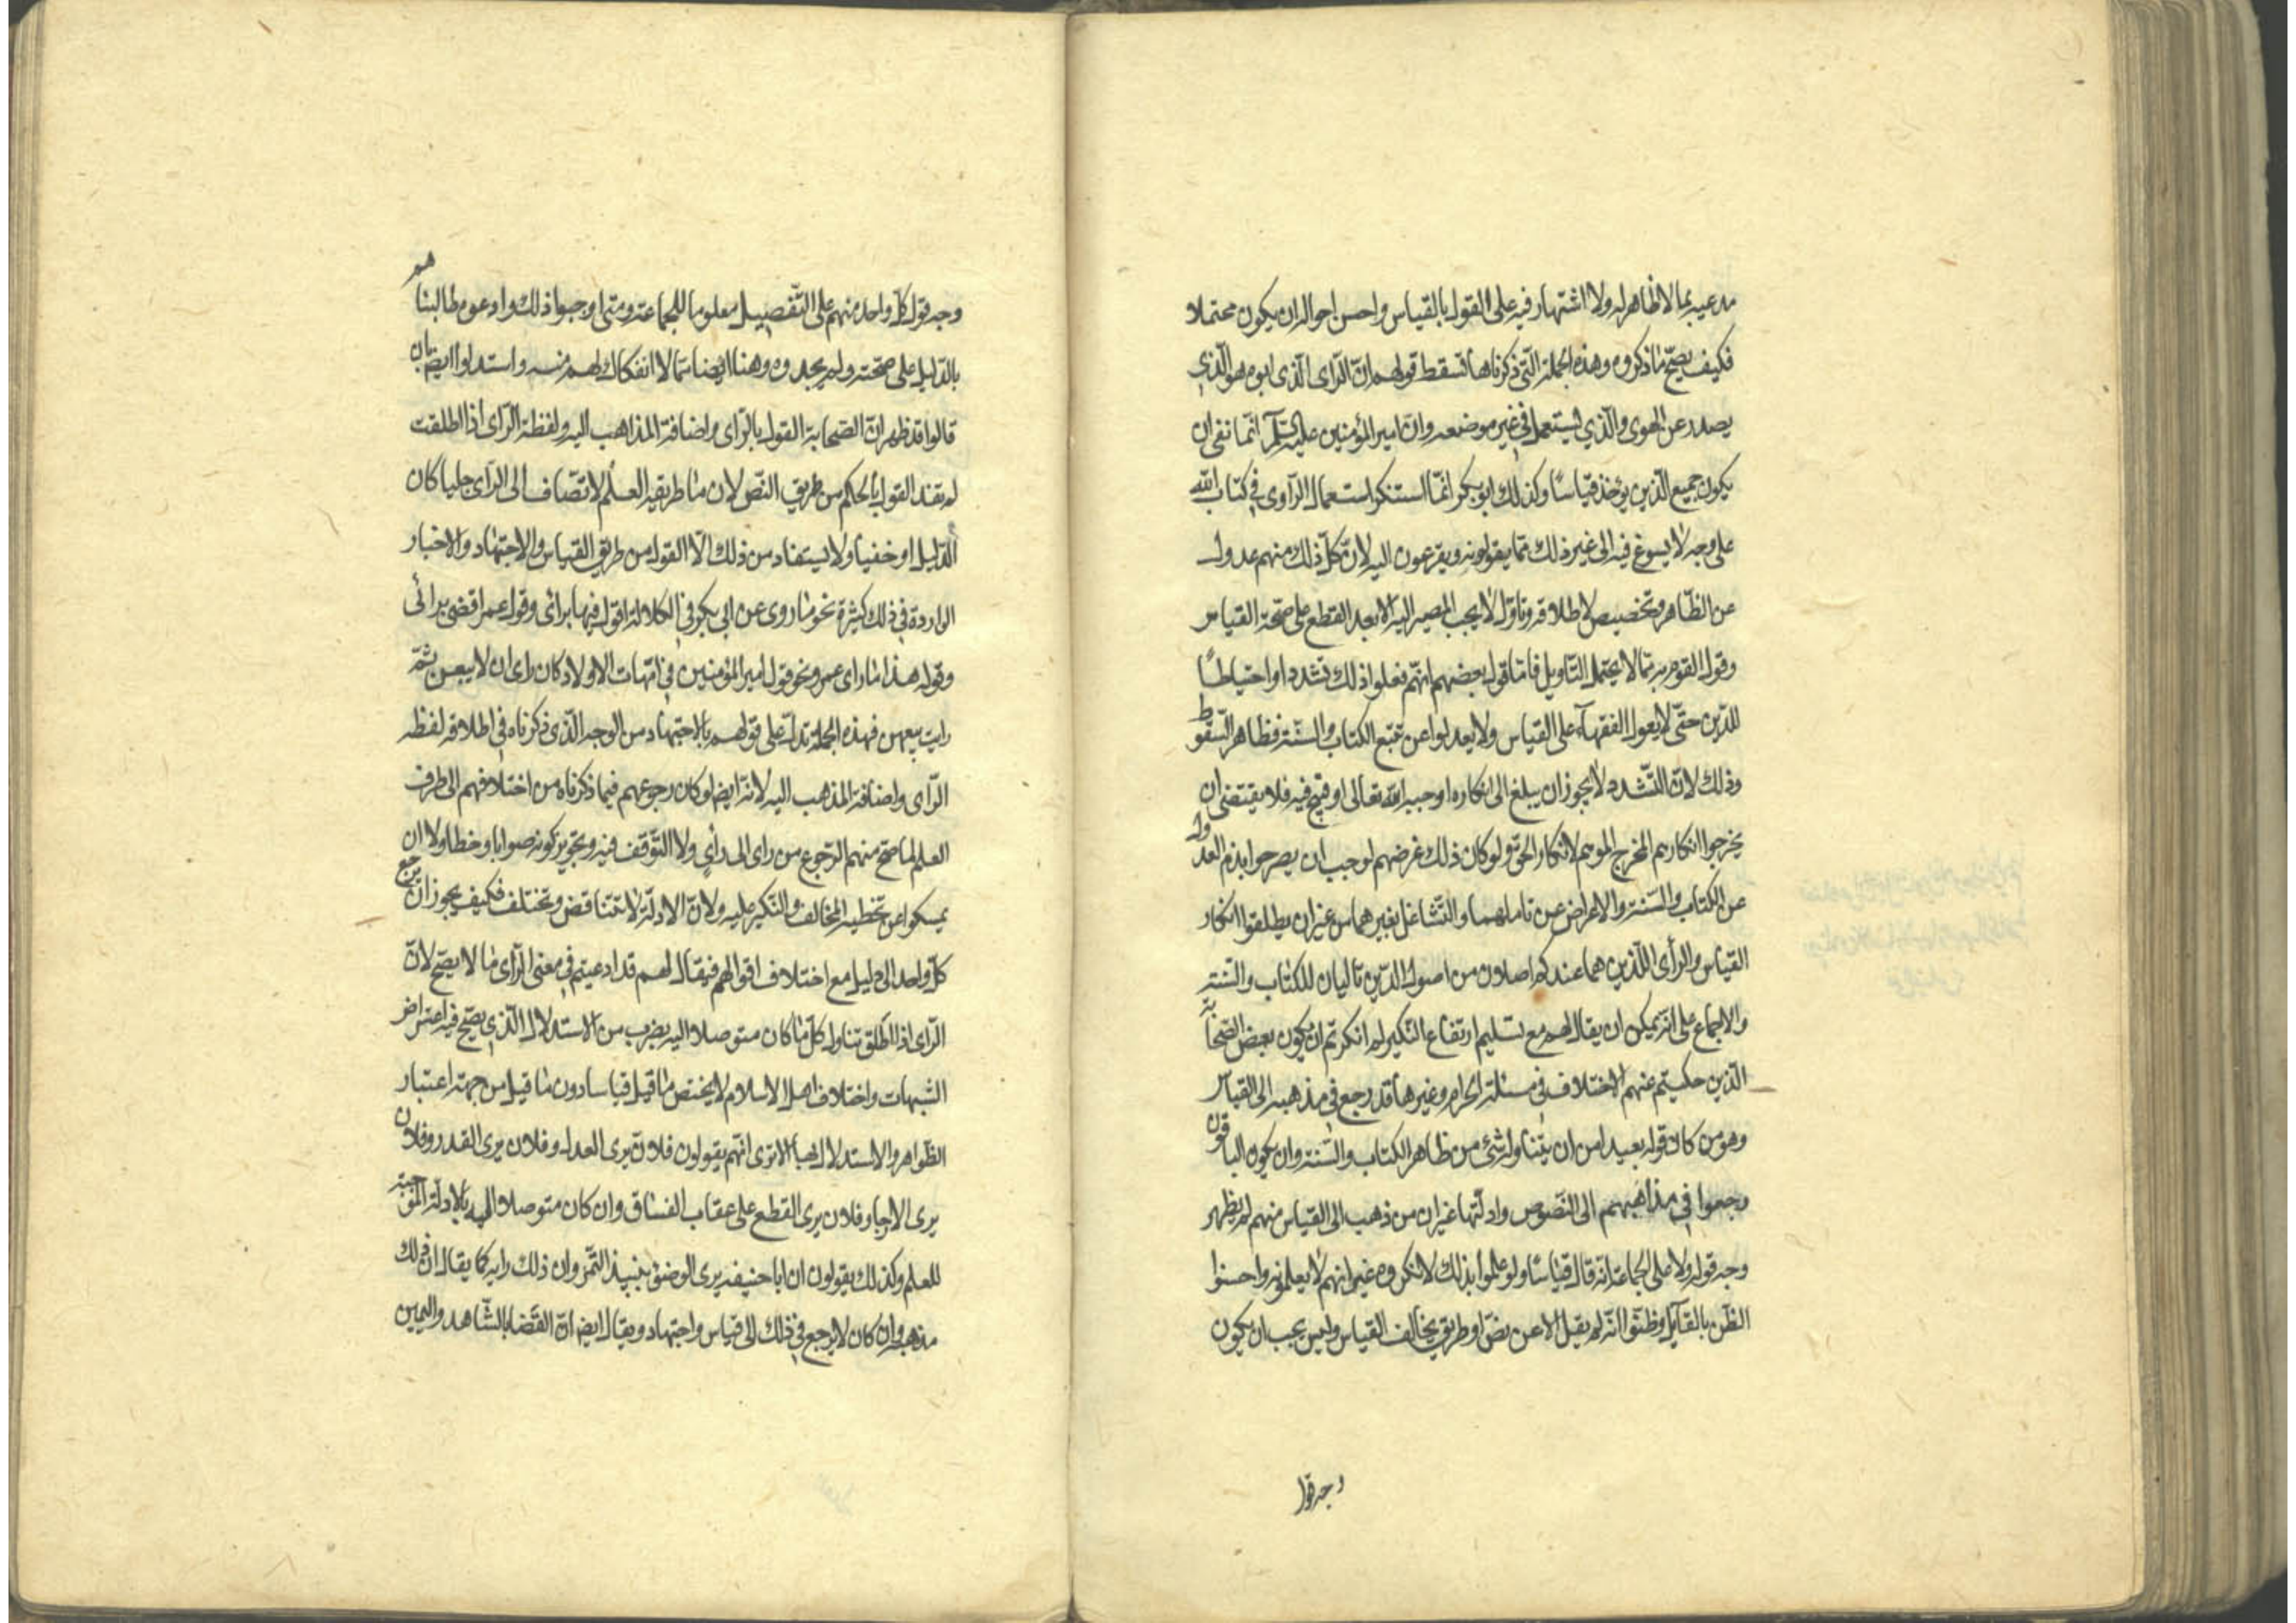 مدعيه بما لا ظاهر له ولا اشتهار فيه على القول بالقياس واحسن احواله ان يكون محتملا
فكيف يصحّ ما ذكروه وهذه الجملة الّتي ذكرناها تسقط قولهم انّ الرّاى الّذى ابوه هو الّذي
يصدر عن الهوى والّذي يستعمل في غير موضعه وانّ امير المؤمنين عليه السّلم انّما نفى ان
يكون جميع الّذين يؤخذ قياسًا وكذلك ابو بكر انّما استنكر استعمال الرّاوى في كتاب الله
على وجه لا يسوغ فيه الى غير ذلك ممّا يقولونه ويفزعون اليه لانّ كلّ ذلك منهم عدول
عن الظّاهر وتخصيص لاطلاقه وتاوّل لا يجب المصير اليه الا بعد القطع على صحّة القياس
وقول القوم به بما لا يحتمل التّاويل فامّا قول بعضهم انّهم فعلوا ذلك تشدد او احتياطًا
للدّين حتّى لا يعول الفقهآء على القياس ولا يعدلوا عن تتبّع الكتاب والسّنّة فظاهر السّقوط
وذلك لانّ التّشدد لا يجوز ان يبلغ الى انكار ما اوجبه الله تعالى او قبح فيه فلا يقتضى ان
يخرجوا انكارهم المخرج الموهم لانكار الحقّ ولو كان ذلك غرضهم لوجب ان يصرحوا بذم العدول
عن الكتاب والسّنة والاعراض عن تاملهما والتّشاغل بغيرهما من غير ان يطلقوا انكار
القياس والرأى اللّذين هما عندكم اصلان من اصول الدّين تاليان للكتاب والسّنّة
والاجماع على انّه يمكن ان يقال لهم مع تسليم ارتفاع النّكير لم انكرتم ان يكون بعض الصّحابة
الّذين حكيتم عنهم الاختلاف في مسئلة الحرام وغيرها قد رجع في مذهبه الى القياس
وهو من كان قوله بعيدا من ان يتناوله شئ من ظاهر الكتاب والسّنة وان يكون الباقون
رجعوا في مذاهبهم الى النّصوص وادلّتها غير ان من ذهب الى القياس منهم لم يظهر
وجه قوله ولا على الجماعة انه قال قياسًا ولو علموا بذلك لانكروه غير انهم لا يعلمونه واحسنوا
الظّن بالقآيل وظنّوا انّه لم يقل الا عن نصّ او طريق يخالف القياس وليس يجب ان يكون
وجه قول
وجه قول كلّ واحد منهم على التّفصيل معلوما للجماعة ومتى اوجبوا ذلك وادعوه طالبناهم
بالدّليل على صحّته ولم يجدوه وهنا ايضا ممّا لا انفكاك لهم منه واستدلوا ايضا بان
قالوا قد ظهر انّ الصّحابة القول بالرّاى واضافة المذاهب اليه ولفظة الرّاى اذا اطلقت
لم يفند القول بالحكم من طريق النّصّ لان ما طريقه العلم لا تضاف الى الرّاى جليا كان
الدّليل او خفيا ولا يستفاد من ذلك الّا القول من طريق القياس والاجتهاد والاخبار
الواردة في ذلك كثيرة نحو ما روى عن ابي بكر في الكلالة اقول فيها برائى وقول عمر اقضى برائى
وقوله هذا ما راى عمر ونحو قول امير المؤمنين في امّهات الاولاد كان راى ان لا يبعن ثمّ
رايت بيعهن فهذه الجملة تدلّ على قولهم بالاجتهاد من الوجه الّذى ذكرناه في اطلاقه لفظه
الرّاى واضافة المذهب اليه لانّه ايضا لو كان رجوعهم فيما ذكرناه من اختلافهم الى طرف
العلم لما صحّ منهم الرّجوع من راى الى رأى ولا التّوقف فيه وتجويز كونه صوابا وخطا ولا ان
يمسكوا عن تخطيه المخالف والنّكير عليه ولانّ الادلّة لا تتناقض وتختلف فكيف يجوز ان يرجع
كلّ واحد الى دليل مع اختلاف اقوالهم فيقال لهم قد ادعيتم في معنى الرّاى ما لا يصّح لانّ
الرّاى اذا اطلق تناول كلّ ما كان متوصلا اليه بضرب من الاستدلال الّذى يصّح فيه اعتراض
الشبهات واختلاف اهل الاسلام لا يختص ما قيل قياسا دون ما قيل من جهة اعتبار
الظّواهر والاستدلال بها الا ترى انّهم يقولون فلان يرى العدل وفلان يرى القدر وفلان
يرى الارجا وفلان يرى القطع على عقاب الفسّاق وان كان متوصلا اليه بالادلّة الموجبة
للعلم وكذلك يقولون ان ابا حنيفه يرى الوضوء بنبيذ التّمر وان ذلك رايه كما يقال ان ذلك
مذهبه وان كان لا يرجع في ذلك الى قياس واجتهاد ويقال ايضا انّ القضا بالشّاهد واليمين